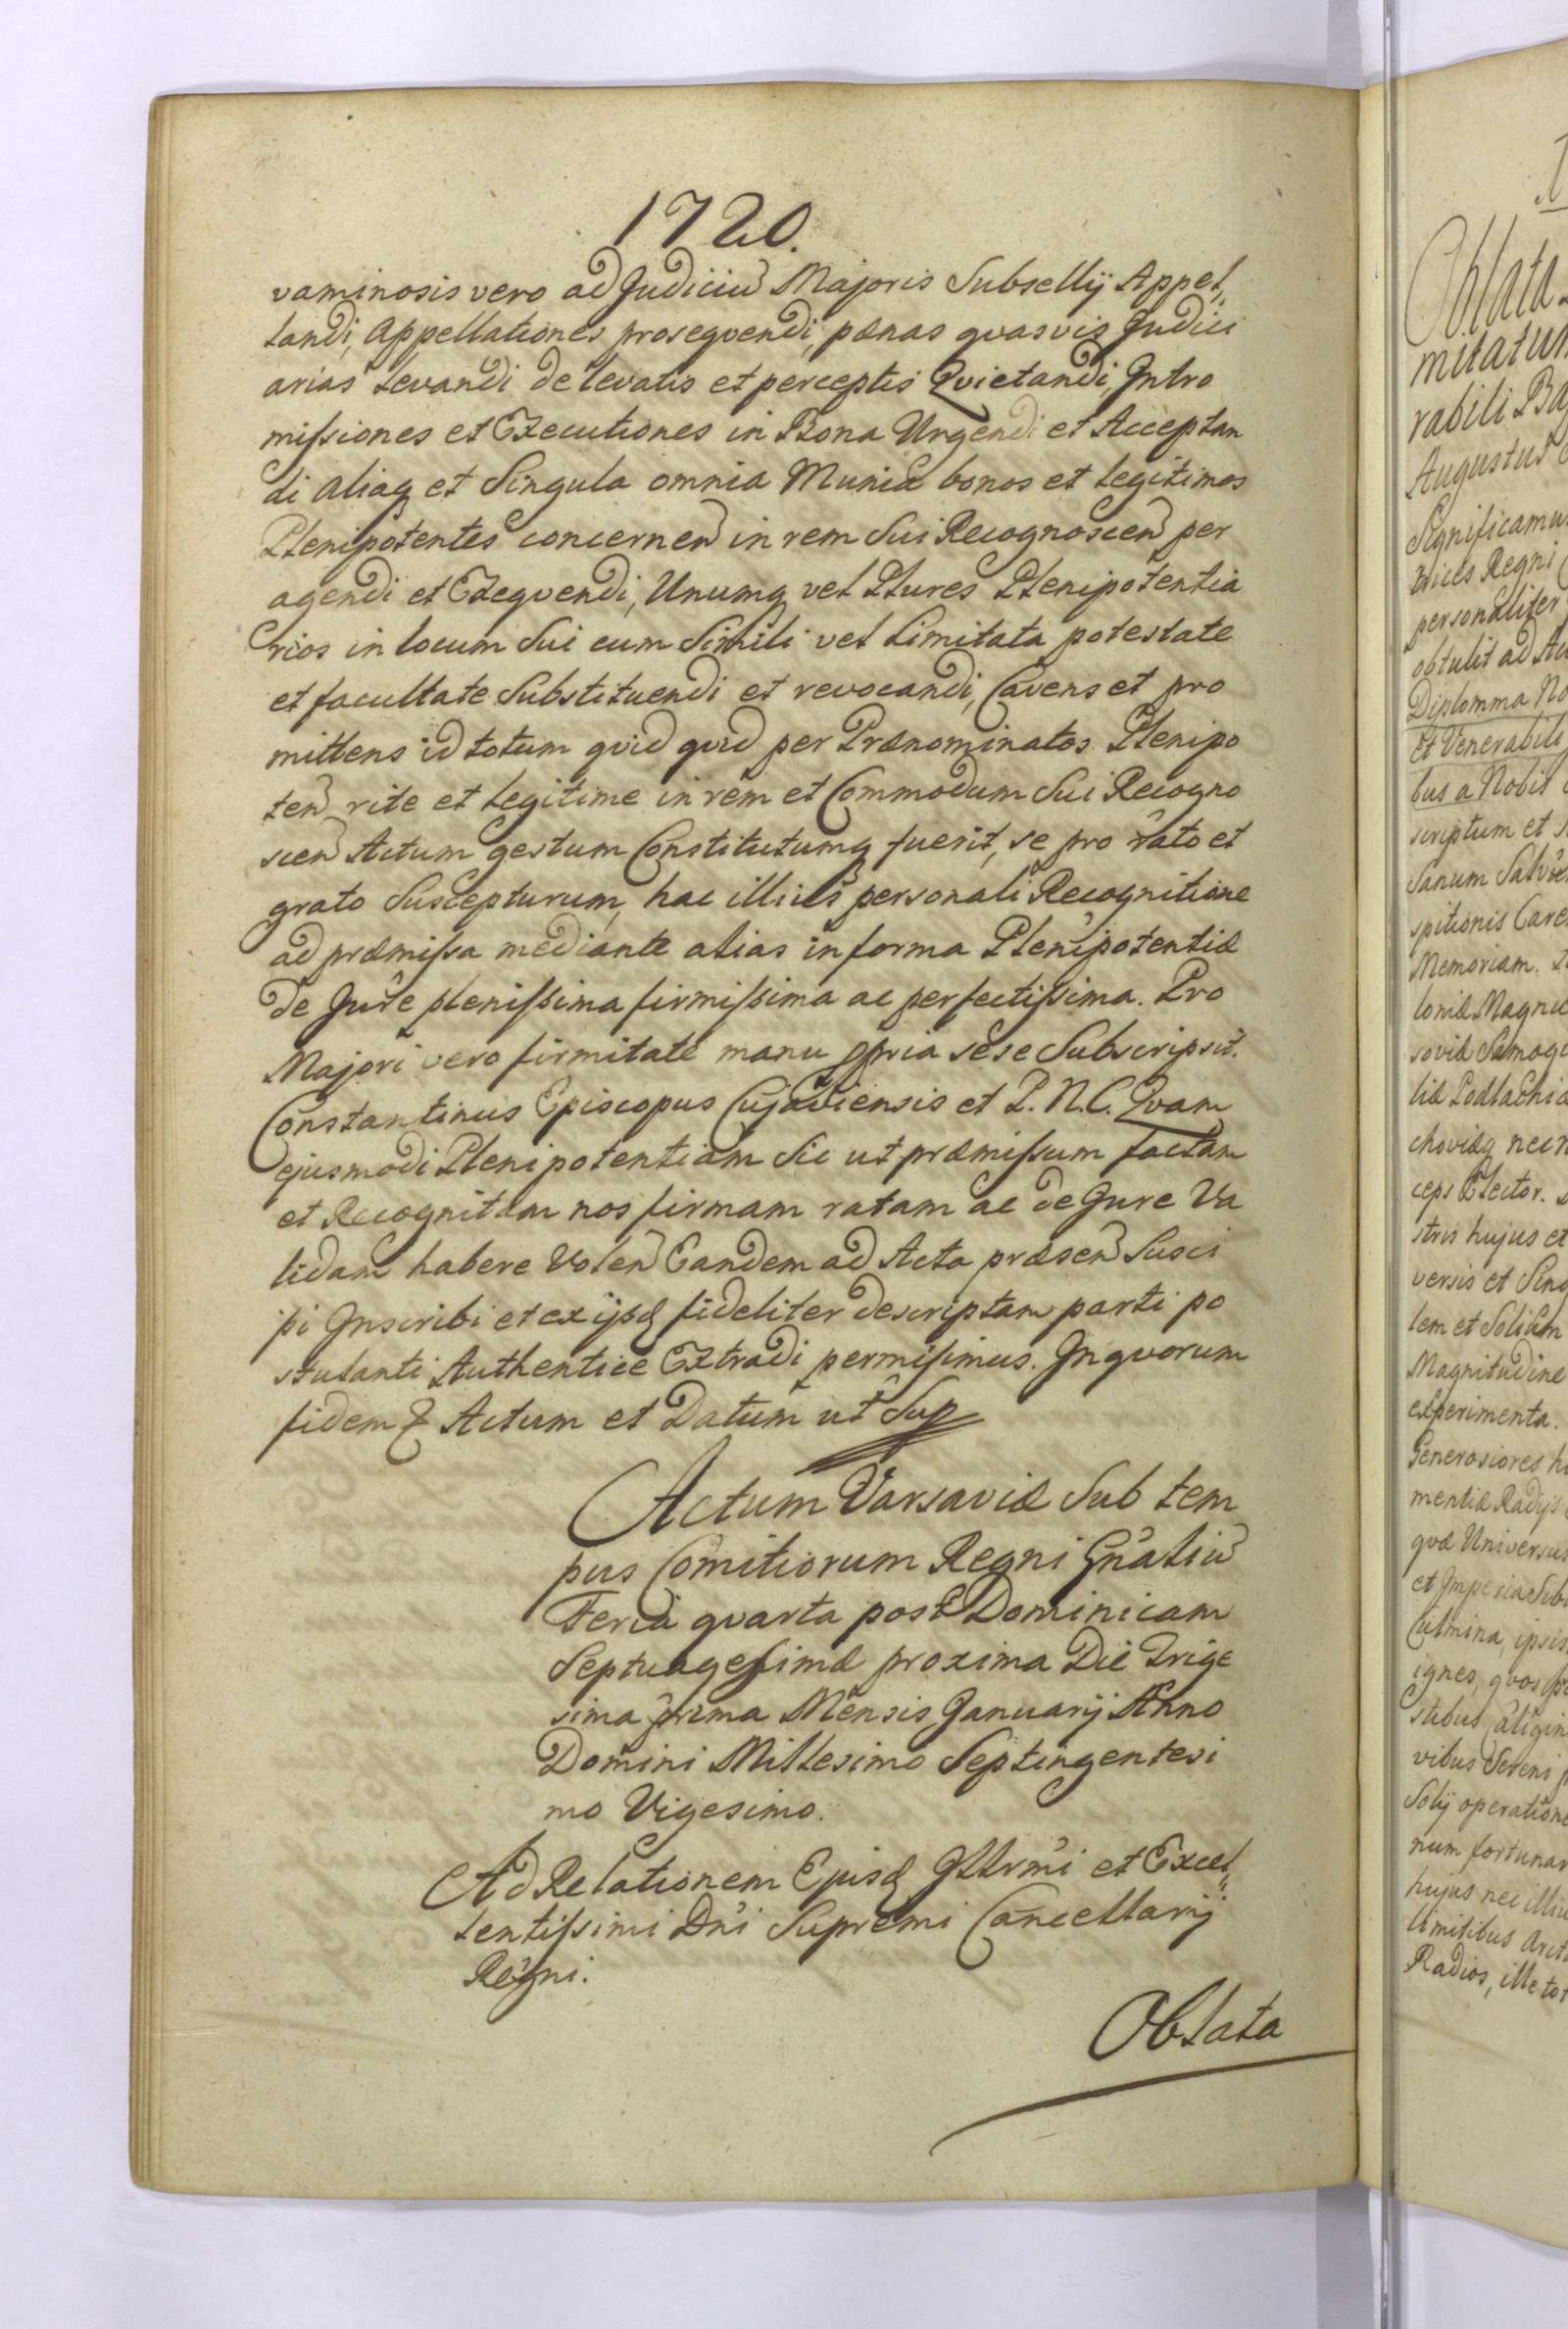 1720.
vaminosis vero ad Judiciu Majoris Subsellij Appel„
landi, Appellationes prosequendi, pænas qvasvis Judici
arias Levandi de levatis et perceptis Qvietandi, Intro
missiones et Executiones in Bona Urgendi et Acceptan
di aliaq et Singula omnia Munia bonos et legitimos
Plenipotentes concernen in rem Sui Recognoscen per
agendi et Exeqvendi, Unumq vel Plures Plenipotentia
rios in locum Sui cum Simili vel Limitata potestate
et facultate Substituendi et revocandi, Cavens et pro
mittens id totum qvid qvid per Prænominatos Plenipo
ten rite et legitime in rem et Commodum Sui Recogno
scen Actum gestum Constitutumq fuerit, se pro rato et
grato Suscepturum, hac illius personali Recognitione
ad præmissa mediante alias in forma Plenipotentiæ
de Jure plenissima firmissima ac perfectissima. Pro
Majori vero firmitate manu ppria sese Subscripsit.
Constantinus Episcopus Cujaviensis et P. N. C. Qvam
ejusmodi Plenipotentiam Sic ut præmissum factam
et Recognitam nos firmam ratam ac de Jure Va
lidam habere Volen Eandem ad Acta præsen Susci
pi Inscribi et ex ijsd fideliter descriptam parti po
stulanti Authentice Extradi permisimus. In qvorum
fidem & Actum et Datum ut Sup
Actum Varsaviæ Sub tem
pus Comitiorum Regni Gnaliu
Feria qvarta post Dominicam
Septuagesimæ proxima Die Trige
sima prima Mensis Januarij Anno
Domini Millesimo Septingentesi
mo Vigesimo.
Ad Relationem Ejusd Illrmi et Excel„
lentissimi Dni Supremi Cancellarij
Regni.
Oblata
Oblata
mitatum
rabili
Augustus
Significamus
trices Regni
personaliter
obtulit ad
Diplomma
et Venerabili
bus a Nobis
scriptum et
Sanum Salv
spitionis
Memoriam.
loniæ Magnus
soviæ Samogi
liæ Podlachiæ
choviæq nec
ceps Elector.
stris hujus et
versis et Sing
lem et Solium
Magnitudine
experimenta.
Generosiores
mentiæ Radijs
qvæ Universus
et Imperia Sibi
Culmina, ipsis
ignes, qvos
stibus
vibus Sereni
Solij operatione
num fortunar
hujus nec illius
limitibus
Radios, ille tot